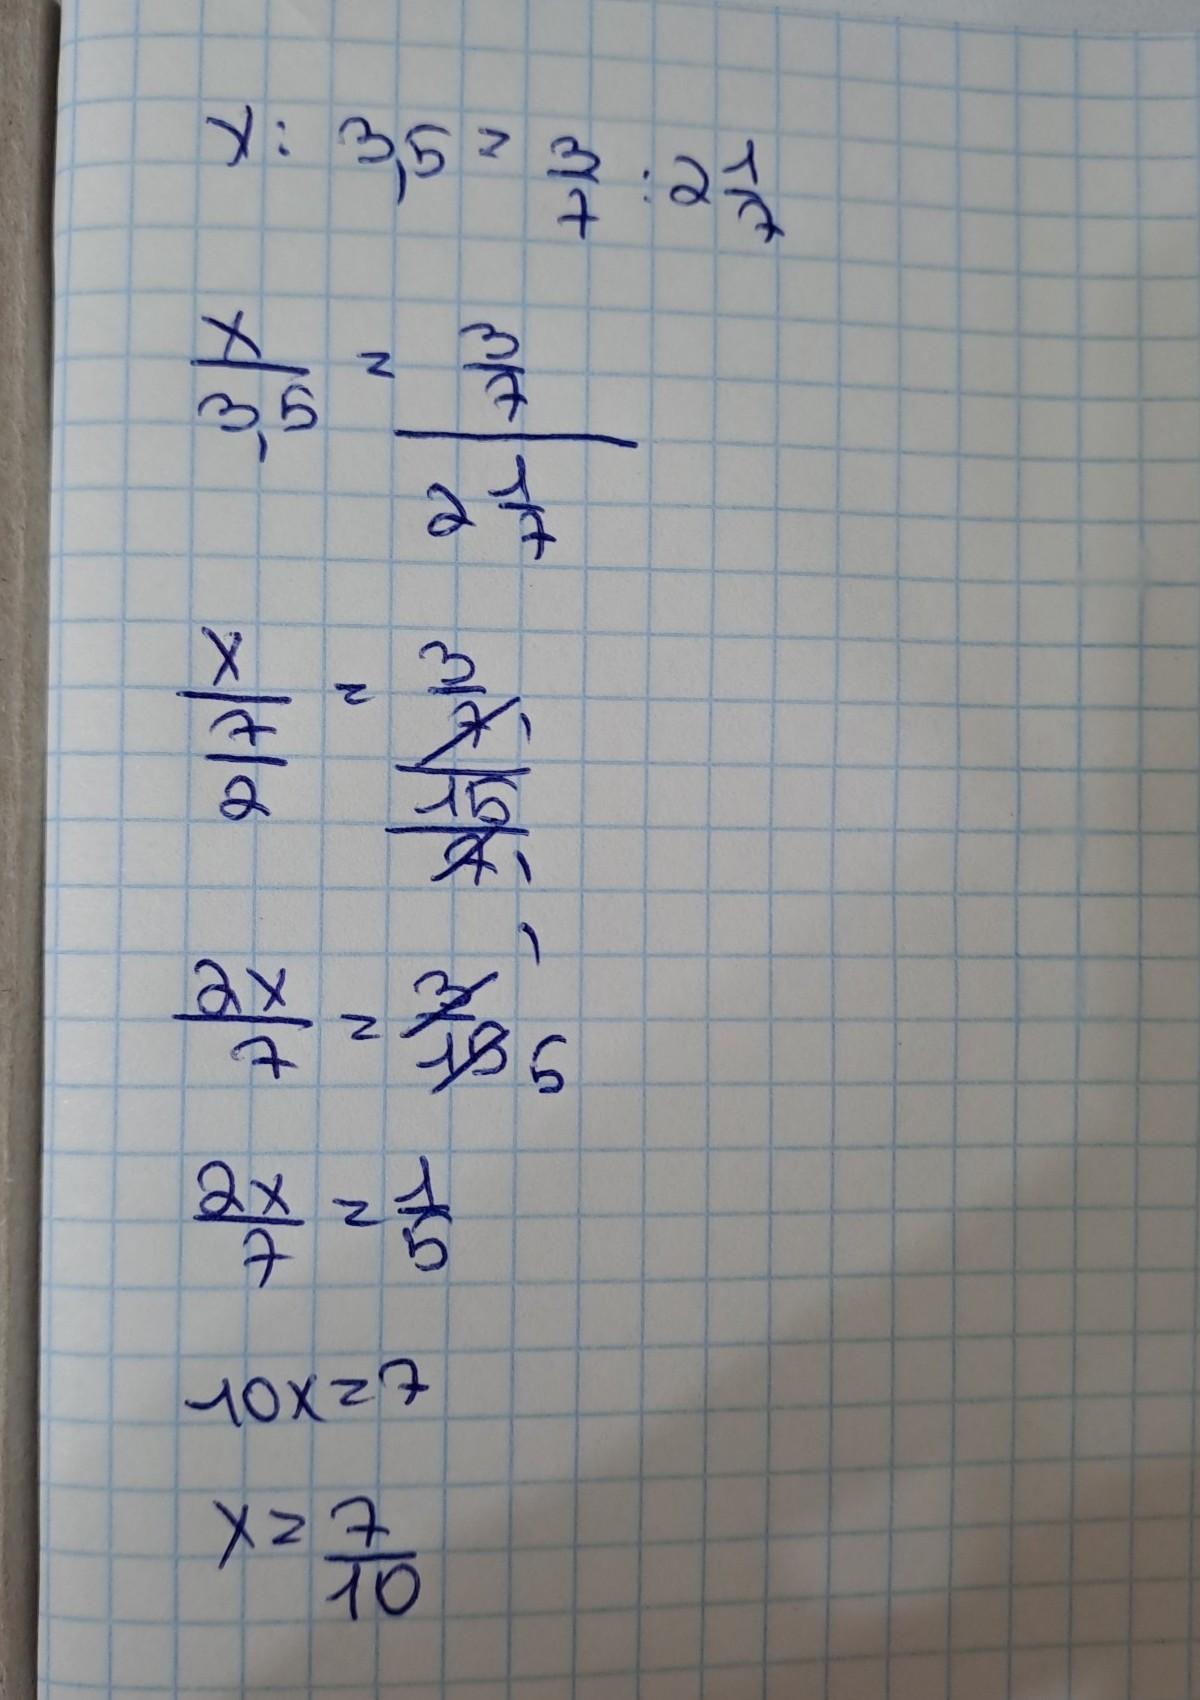 x : 3,5 = 3/7 : 2 1/7
x/3,5 = (3/7)/(2 1/7)
x/(7/2) = (3/7)/(15/7)
2x/7 = 3/15 1 5
2x/7 = 1/5
10x = 7
x = 7/10